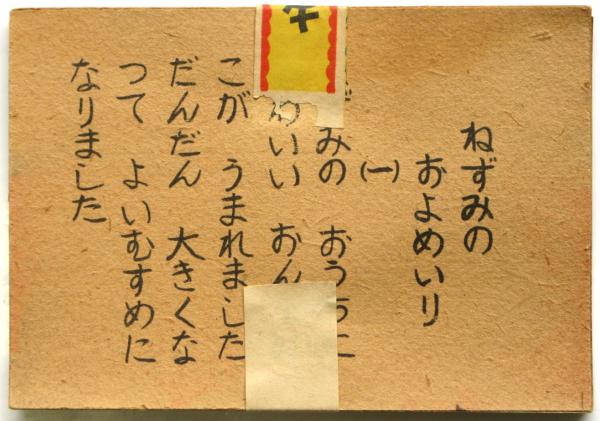 ねずみの
およめいり
(一)
ずみの おうちに
わいい おん
こが うまれました
だんだん 大きくな
つて よいむすめに
なりました